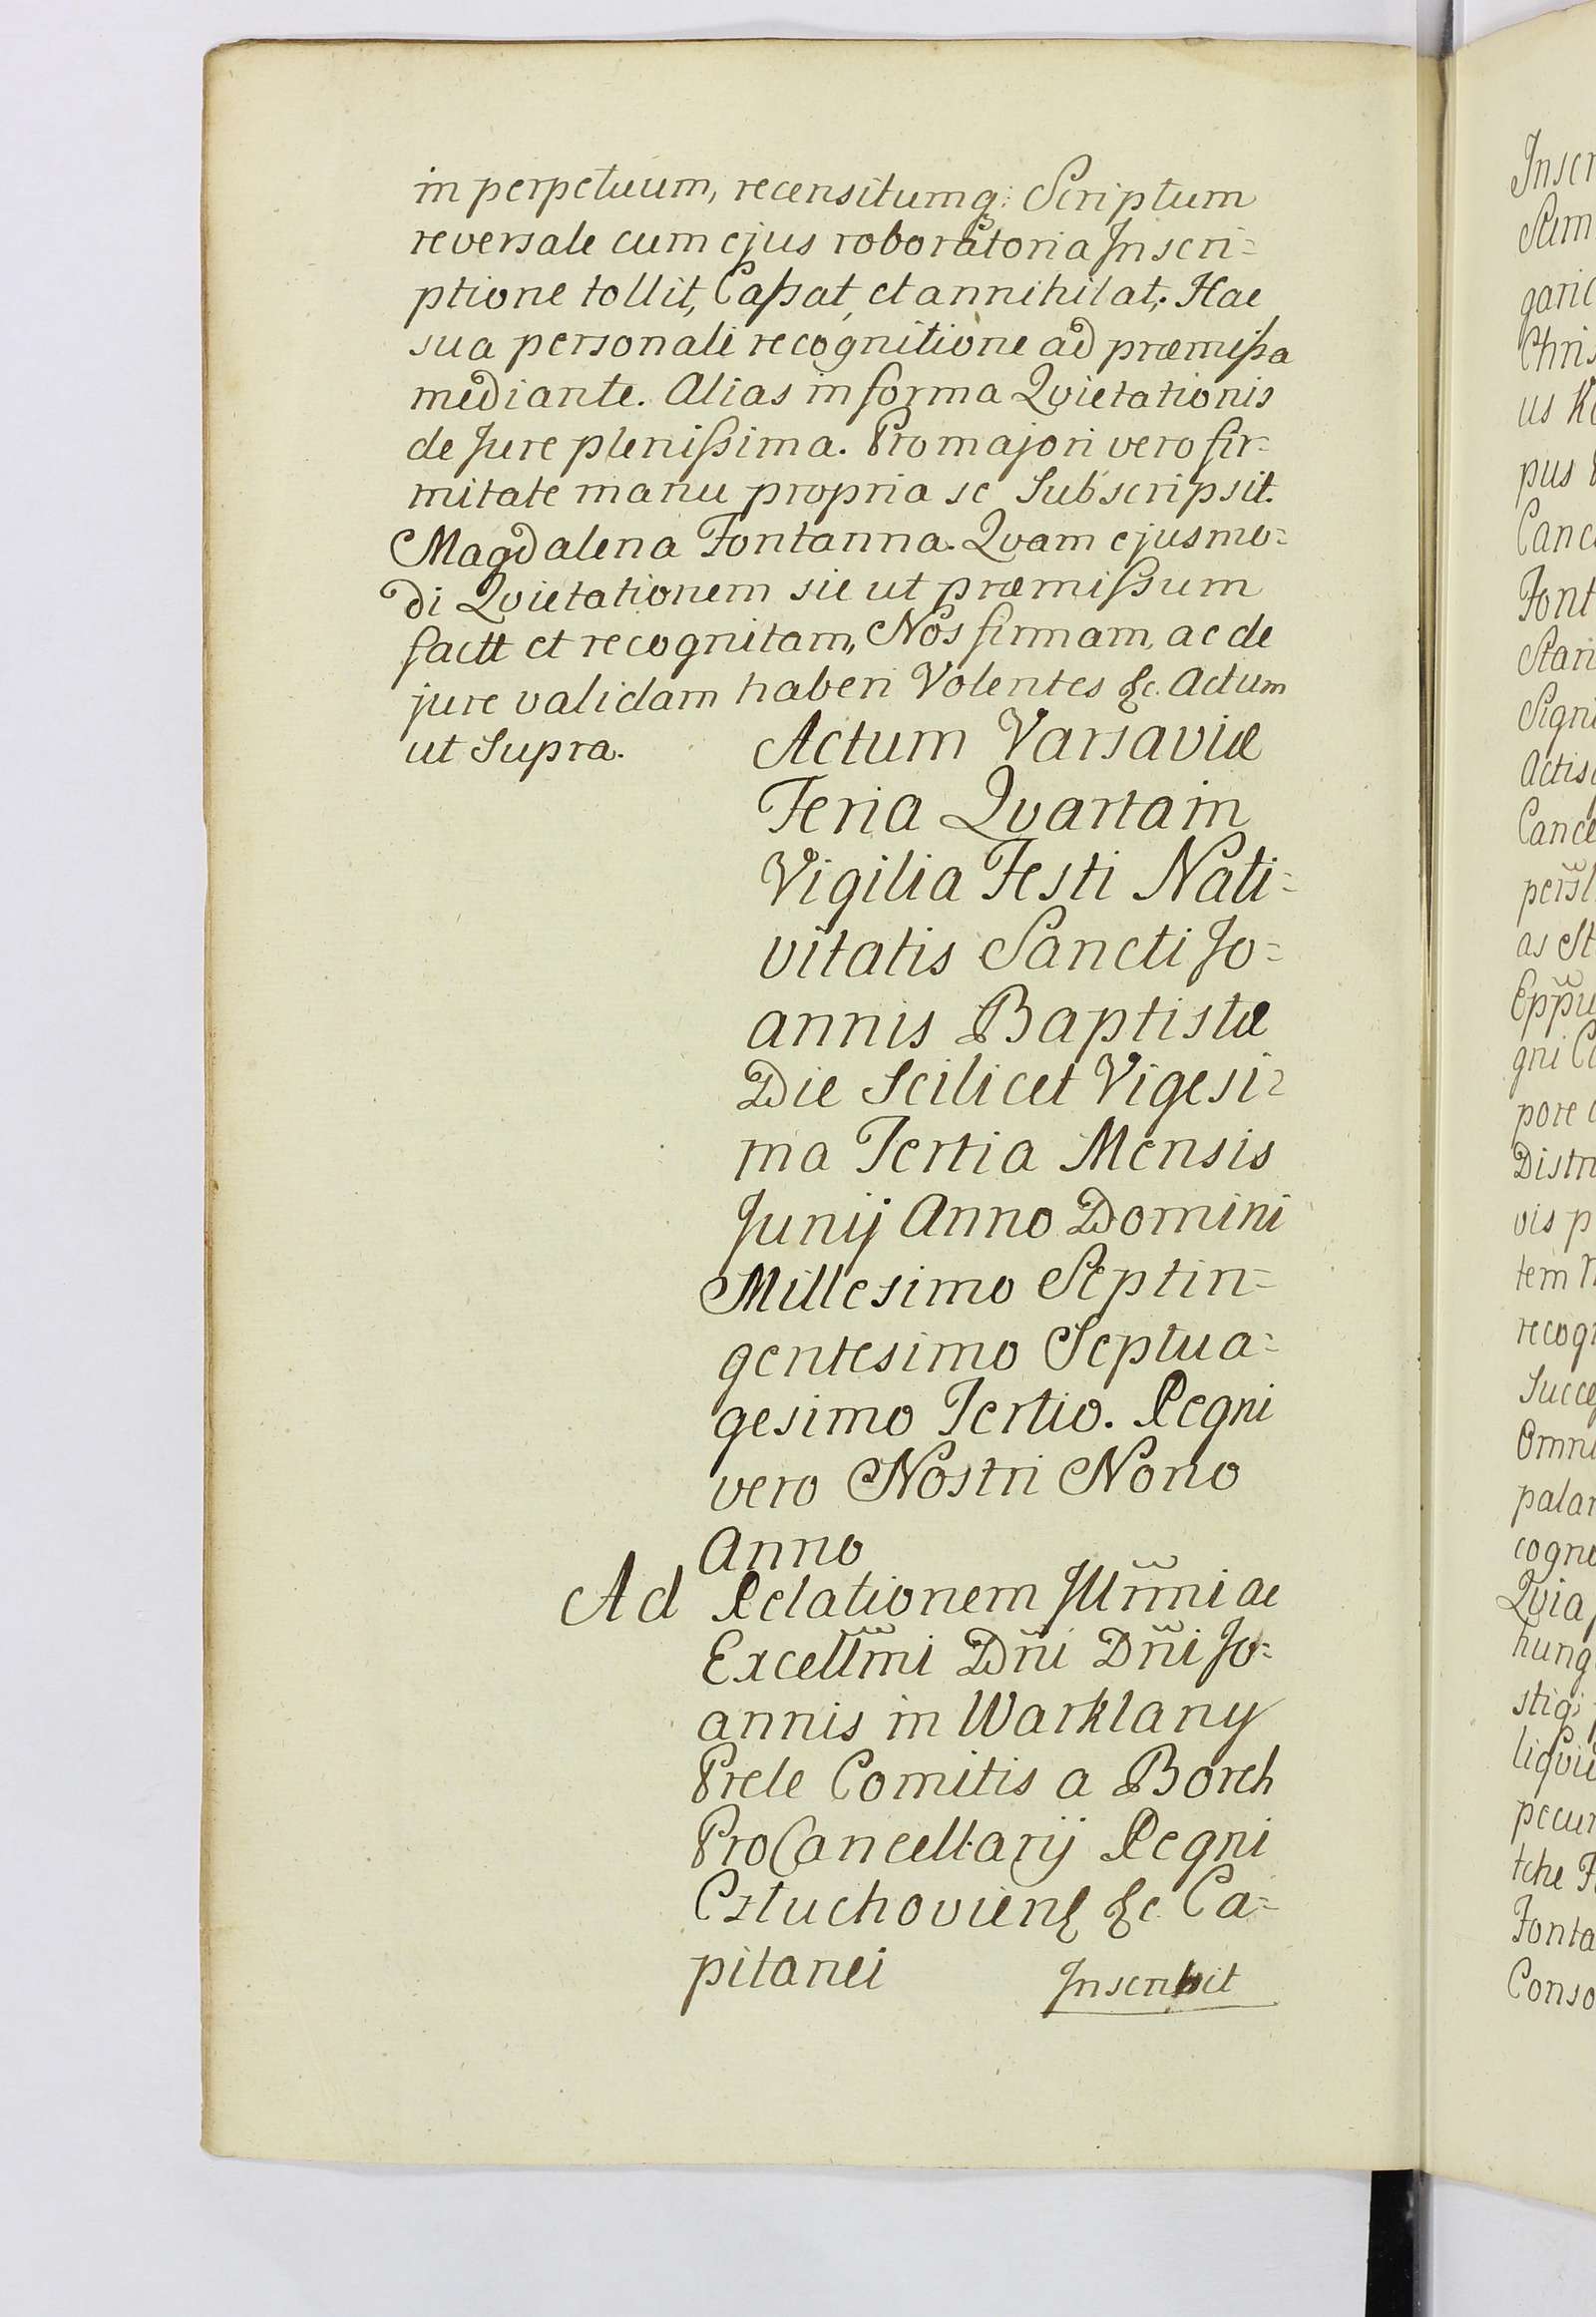 in perpetuum, recensitumq: Scriptum
reversale cum ejus roboratoria Inscri=
ptione tollit, Cassat, et annihilat; Hac
sua personali recognitione ad præmissa
mediante. Alias in forma Qvietationis
de Jure plenissima. Pro majori vero fir=
mitate manu propria se Subscripsit.
Magdalena Fontanna. Qvam ejusmo=
di Qvietationem sic ut præmissum
factt et recognitam, Nos firmam, ac de
jure validam haberi Volentes &c. Actum
ut Supra.
Actum Varsaviæ
Feria Qvarta in
Vigilia Festi Nati=
vitatis Sancti Jo=
annis Baptistæ
Die Scilicet Vigesi=
ma Tertia Mensis
Junij Anno Domini
Millesimo Septin=
gentesimo Septua=
gesimo Tertio. Regni
vero Nostri Nono
Anno
Ad Relationem Illmni ac
Excellmi Dni Dni Jo=
annis in Warklany
Prele Comitis a Borch
ProCancellarij Regni
Cztuchoviens &c. Ca=
pitanei
Inscribit
Inscr
Sam
garic
Chris
us
pus
Canc
Font
Stari
Sign
Actis
Cance
persl
as St
Eppu
gni C
pore
Distri
vis p
tem
recog
Succe
Omni
palar
cogno
Qvia
hung
stiq;
liqvi
pecun
tche F
Fonta
Conso